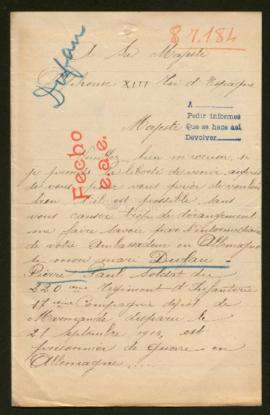 87.184
Dufau
A Sa Majesté
Alphonse XIII Roi d'Espagne
A
Pedir informes
Que se hace así
Devolver
Majesté
Fecho
e.a.e.
bien m'excuser, si
je prends la liberté de venir auprès
de vous pour vous prier de vouloir
bien s'il est possible sans
vous causer trop de dérangement
me faire savoir par l'intermédiaire
de votre Ambassadeur en Allemagne
si mon mari Dufau
Pierre Paul Soldat du
220 ème Régiment d'Infanterie
17 ème Compagnie dépôt de
Marmande disparu le
21 Septembre 1914, est
prisonnier de Guerre en
Allemagne